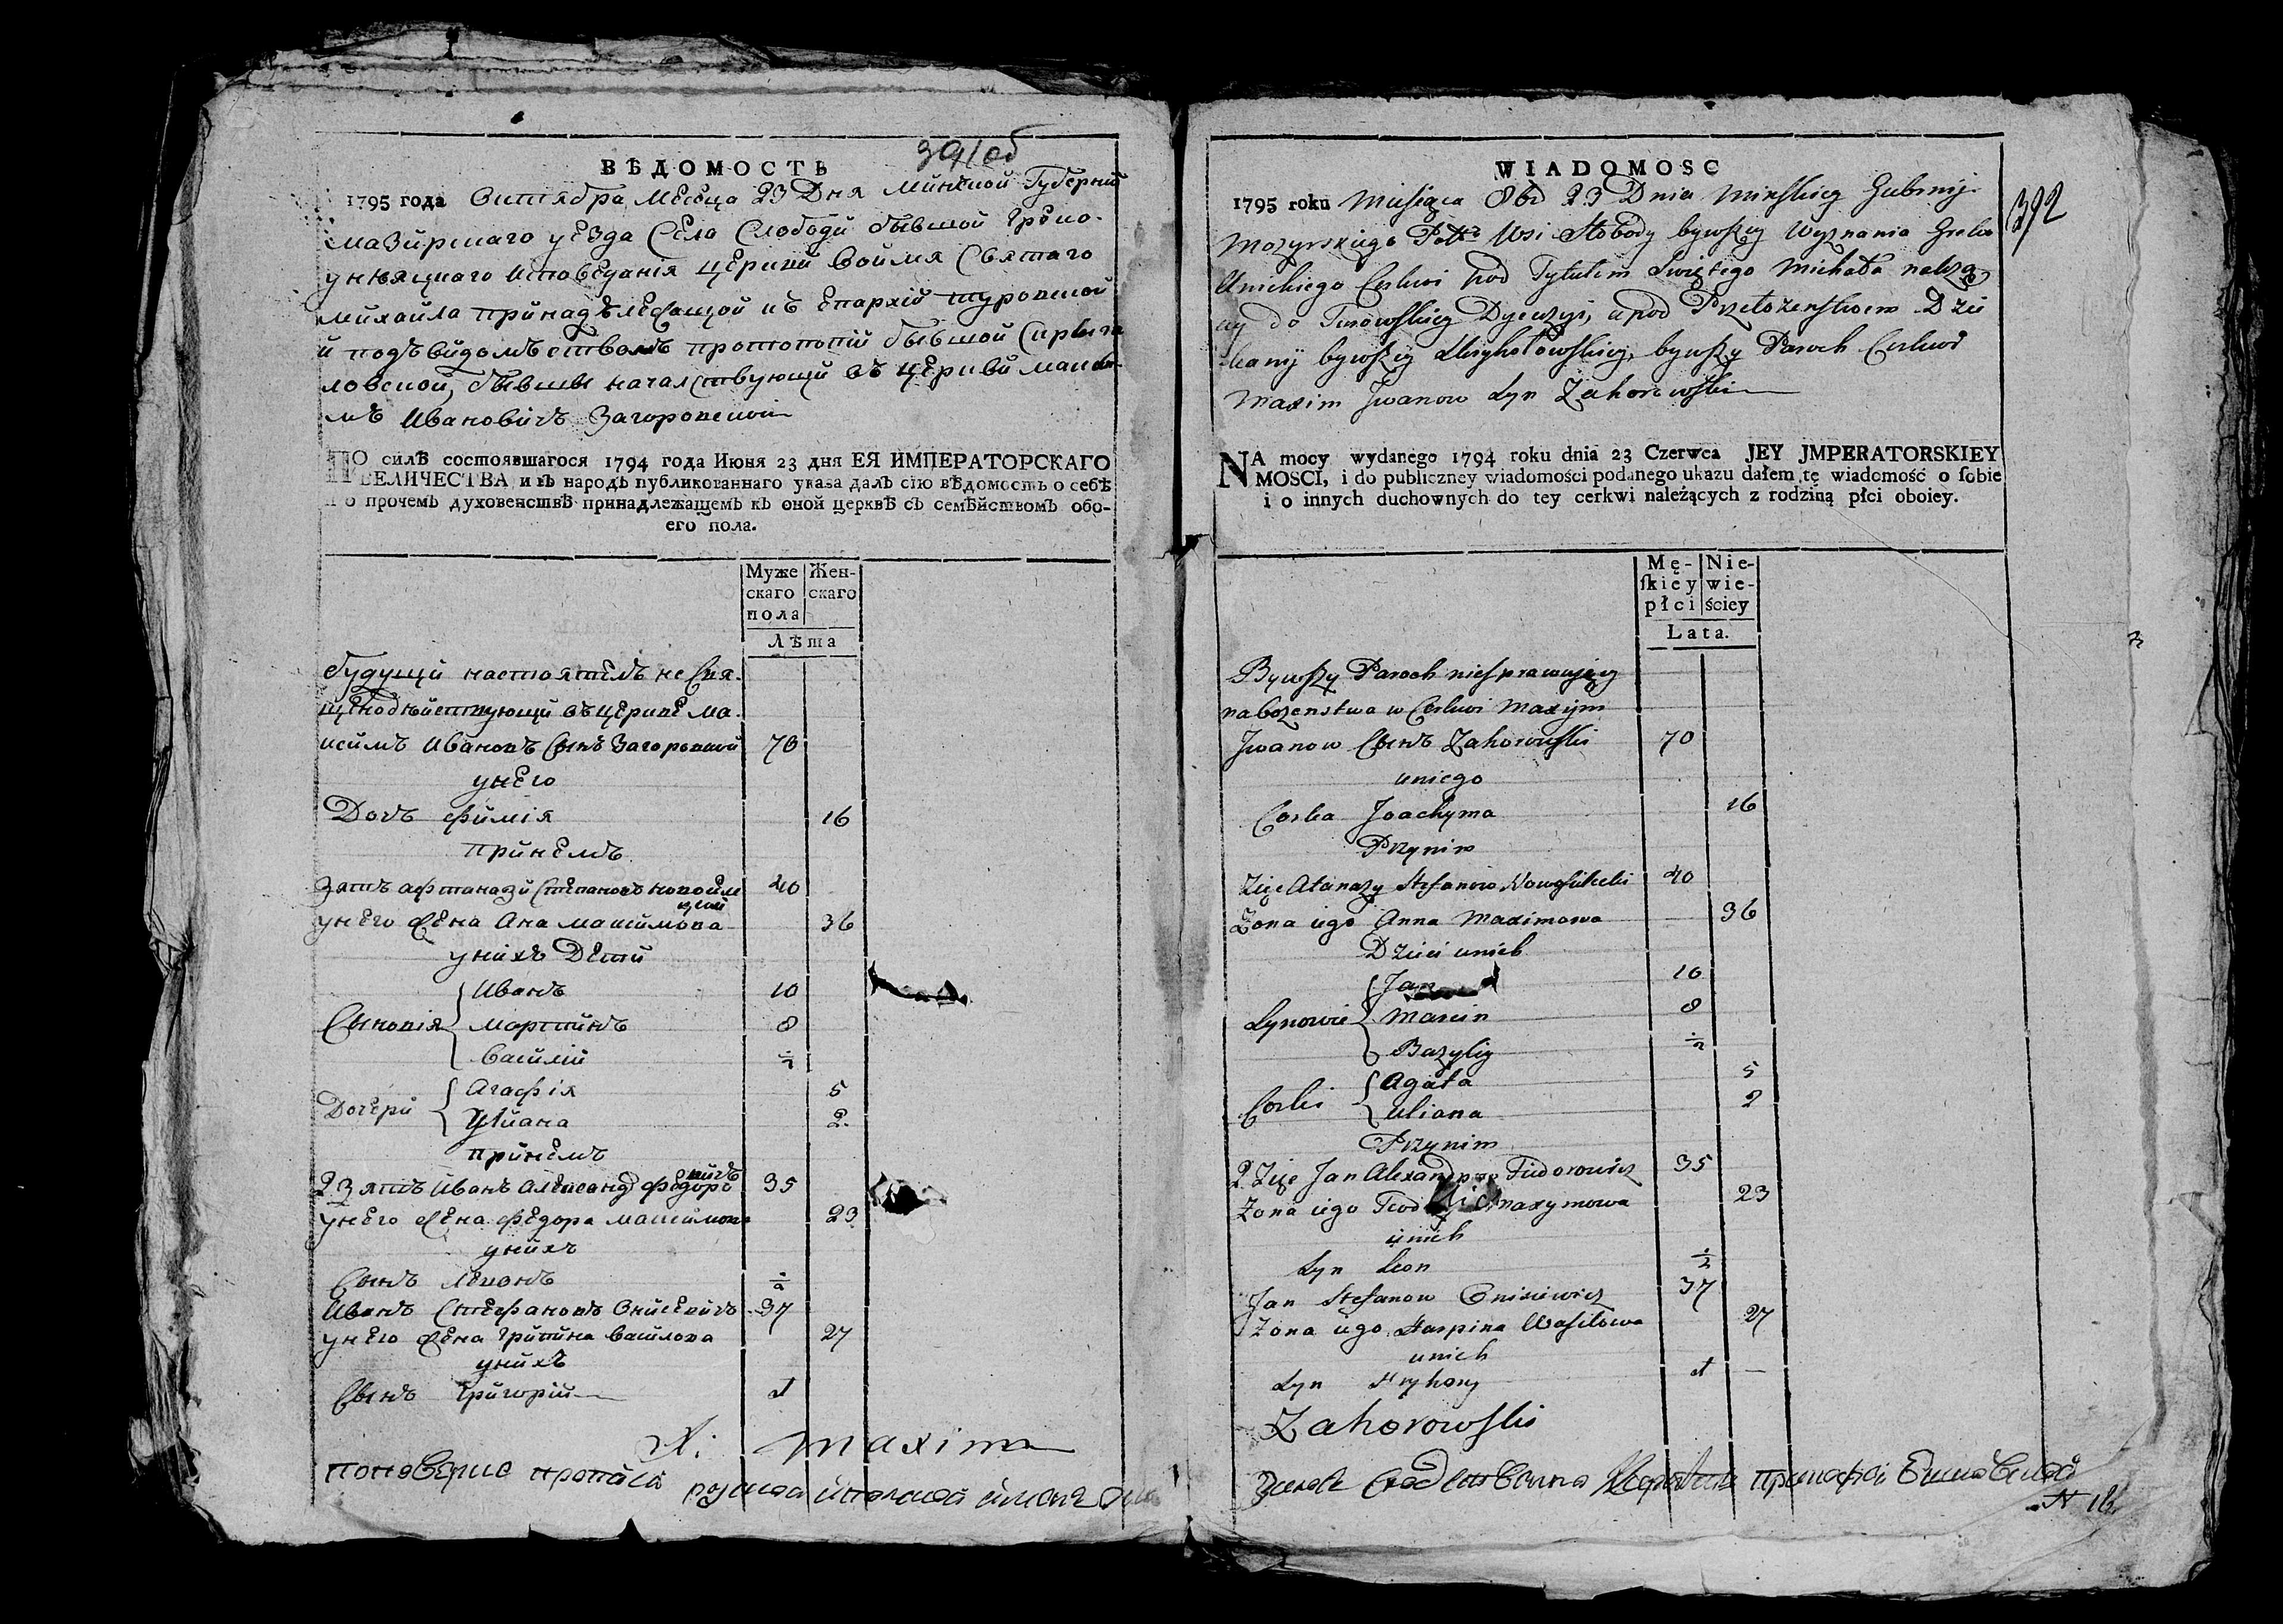 391об
ВѢДОМОСТЬ
1795 года Октября Месеца 23 Дня Минской Губернии
Мазирскаго уезда Села Слободи бывшой Греко-
униѧцкаго исповеданія церкви воимя Святаго
Михайла принадълежащой къ епархій туровской
и подъ видомъством протопопій бывшой
ловской, бывшы началствующий въ церкви макси
мъ Ивановичъ Загоровской
ПО силѣ состоявшагося 1794 года Июня 23 дня ЕЯ ИМПЕРАТОРСКАГО
ВЕЛИЧЕСТВА и въ народъ публикованнаго указа далъ сію вѣдомость о себѣ
и о прочемъ духовенствѣ принадлежащемъ къ оной церквѣ съ семѣйствомъ обо-
его пола.
Муже Жен-
скаго скаго
пола
Лѣта
будущий настоятель не свя-
щенодъйствующий въ церкве Ма-
ксимъ Ивановъ Сынъ Загоровский 70
унего
Дочъ Фимія 16
принемъ
Зять Афтанази Степановъ 40
унего жена Ана Максимова 36
унихъ Дети
Иванъ 10
Сыновія Мартинъ 8
Василий ½
Агафія 5
Дочери Улиана 2
принемъ
2 Зять Иванъ Александ Федоро вичъ 35
унего жена Федора Максимова 23
унихъ
Сынъ Леионъ ½
Иванъ Стефановъ Онисевичъ 37
унего жена Грипина Василова 27
унихъ
Сынъ Григорій 1
X: Maxim
392
WIADOMOSC
1795 roku Miesiąca 8br 23 Dnia Minskiey Gubernij
Mozyrskiego Pottu Wsi Słobody bywszey Wyznania Greko
Unickiego Cerkwi pod Tytułem Swiętego Michała należą
cey do Turowskiey Dyecezyi, a pod Przełożenstwem Dzie
kanij bywszey bywszy Paroch Cerkwi
Maxim Jwanow Syn Zahorowski
NA mocy wydanego 1794 roku dnia 23 Czerwca JEY JMPERATORSKIEY
MOSCI, i do publiczney wiadomości podanego ukazu dałem tę wiadomość o ſobie
i o innych duchownych do tey cerkwi należących z rodziną płci oboiey.
Mę- Nie-
ſkiey wie-
płci ściey
Lata.
Bywszy Paroch niesprawujący
nabozenstwa w Cerkwi Maxijm
Jwanow Сынъ Zahorowski 70
uniego
Corka Joachyma 16
Przynim
Zięc Atanazy Stefanow 40
Zona iego Anna Maximowa 36
Dzieci unich
Jan 10
Synowie Marcin 8
Bazyliy ½
Agata 5
Corki Uliana 2
Przynim
2 Zięc Jan Alexandrow Fiedorowicz 35
Zona iego Maxymowa 23
unich
Syn Leon ½
Jan Stefanow Onisiewicz 37
Zona iego Harpina Wasilowa 27
unich
Syn Hryhory 1 —
Zahorowski
N 18